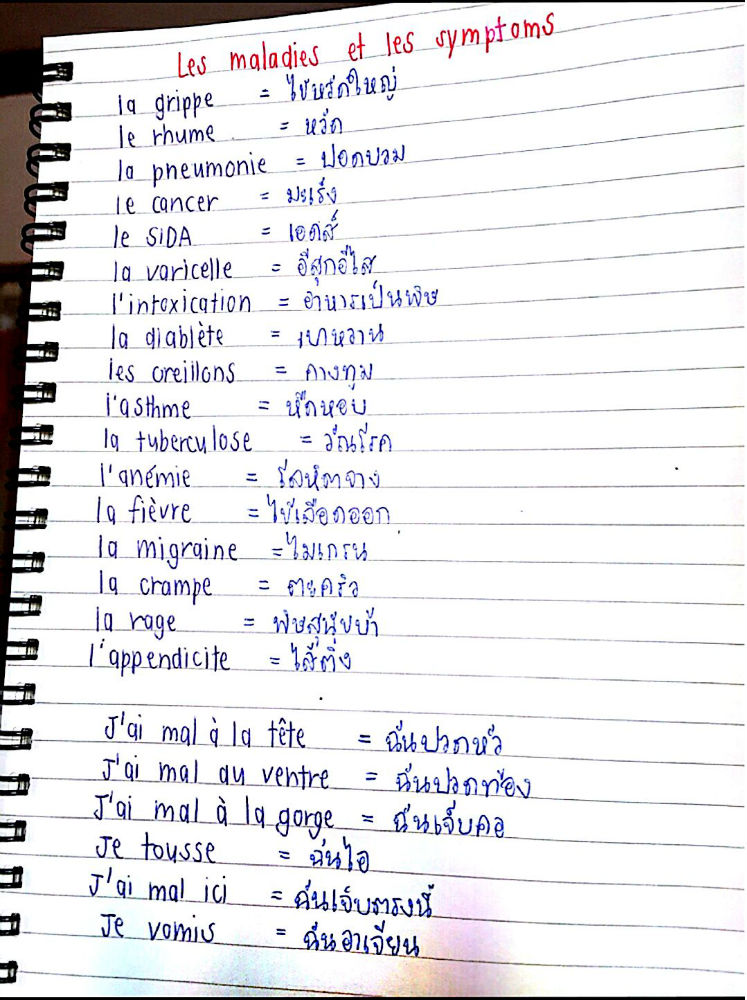 Les maladies et les symptoms
la grippe = ไข้หวัดใหญ่
le rhume = หวัด
la pneumonie = ปอดบวม
le cancer = มะเร็ง
le SiDA = เอดส์
la varicelle = อีสุกอีใส
l'intoxication = อาหารเป็นพิษ
la diablète = เบาหวาน
les oreillons = คางทูม
l'asthme = หืดหอบ
la tuberculose = วัณโรค
l'anémie = โลหิตจาง
la fièvre = ไข้เลือดออก
la migraine = ไมเกรน
la crampe = ตะคริว
la rage = พิษสุนัขบ้า
l'appendicite = ไส้ติ่ง
J'ai mal à la tête = ฉันปวดหัว
J'ai mal au ventre = ฉันปวดท้อง
J'ai mal à la gorge = ฉันเจ็บคอ
Je tousse = ฉันไอ
J'ai mal ici = ฉันเจ็บตรงนี้
Je vomis = ฉันอาเจียน